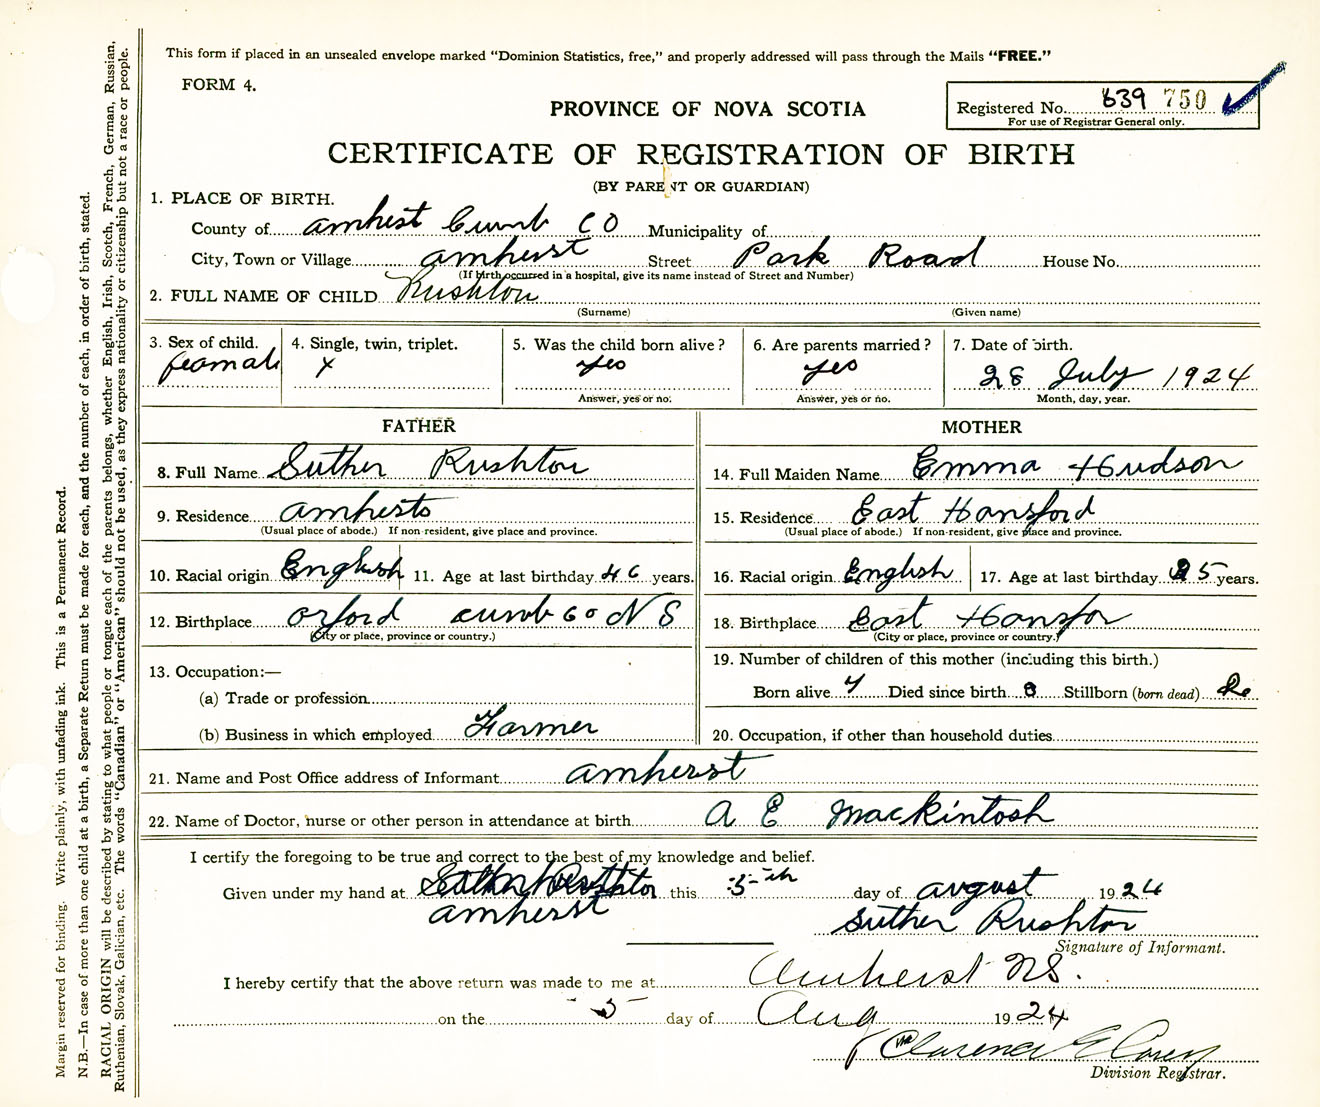 This form if placed in an unsealed envelope marked "Dominion Statistics, free," and properly addressed will pass through the Mails "FREE."
FORM 4.
PROVINCE OF NOVA SCOTIA
Registered No. 639 750
For use of Registrar General only.
CERTIFICATE OF REGISTRATION OF BIRTH
(BY PARENT OR GUARDIAN)
1. PLACE OF BIRTH.
County of amhest Cumb CO Municipality of
City, Town or Village amherst Street Park Road House No.
(If birth occurred in a hospital, give its name instead of Street and Number)
2. FULL NAME OF CHILD Rushton
(Surname) (Given name)
3. Sex of child. 4. Single, twin, triplet. 5. Was the child born alive? 6. Are parents married? 7. Date of birth.
feamale x yes yes 28 July 1924
Answer, yes or no. Answer, yes or no. Month, day, year.
FATHER MOTHER
8. Full Name Suther Rushton 14. Full Maiden Name Emma Hudson
9. Residence amhersto 15. Residence East Hansford
(Usual place of abode.) If non-resident, give place and province. (Usual place of abode.) If non-resident, give place and province.
10. Racial origin English 11. Age at last birthday 46 years. 16. Racial origin English 17. Age at last birthday 25 years.
12. Birthplace Oxford cumb Co N S 18. Birthplace East Hansfor
(City or place, province or country.) (City or place, province or country.)
13. Occupation:— 19. Number of children of this mother (including this birth.)
(a) Trade or profession Born alive Died since birth Stillborn (born dead)
(b) Business in which employed Farmer 20. Occupation, if other than household duties
21. Name and Post Office address of Informant amherst
22. Name of Doctor, nurse or other person in attendance at birth A E Mackintosh
I certify the foregoing to be true and correct to the best of my knowledge and belief.
Given under my hand at this 5th day of august 1924
amherst Suther Rushton
Signature of Informant.
I hereby certify that the above return was made to me at Amherst NS.
on the 5 day of Aug 1924
Clarence E Casey
Division Registrar.
Margin reserved for binding. Write plainly, with unfading ink. This is a Permanent Record.
N.B.—In case of more than one child at a birth, a Separate Return must be made for each, and the number of each, in order of birth, stated.
RACIAL ORIGIN will be described by stating to what people or tongue each of the parents belongs, whether English, Irish, Scotch, French, German, Russian,
Ruthenian, Slovak, Galician, etc. The words "Canadian" or "American" should not be used, as they express nationality or citizenship but not a race or people.